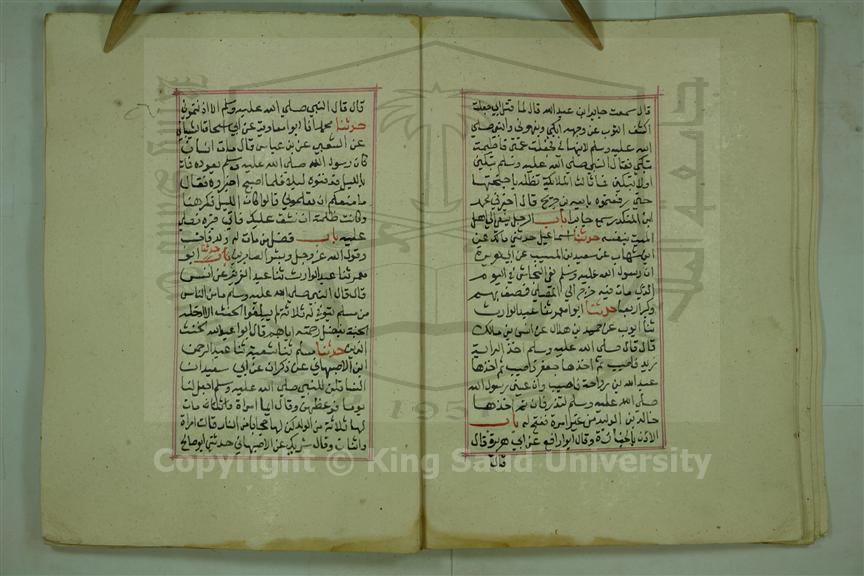 قال سمعت جابر ابن عبد الله قال لما قتل ابي جعلت
اكشف الثوب عن وجهه ابكي وينهوني والنبي صلى
الله عليه وسلم لا ينهاني فجعلت عمتي فاطمة
تبكي فقال النبي صلى الله عليه وسلم تبكين
او لا تبكين فما زالت الملائكة تظله باجنحتها
حتى رفعتموه تابعه بن جريج قال اخبرني محمد
ابن المنكدر سمع جابرا باب الرجل ينعى الى اهل
الميت بنفسه حدثنا اسماعيل حدثني مالك عن
ابن شهاب عن سعيد بن المسيب عن ابي هريرة
ان رسول الله صلى الله عليه وسلم نعى النجاشي في اليوم
الذي مات فيه خرج الى المصلى فصف بهم
وكبر اربعا حدثنا ابو معمر ثنا عبد الوارث
ثنا ايوب عن حميد بن هلال عن انس بن مالك
قال قال صلى الله عليه وسلم اخذ الراية
زيد فاصيب ثم اخذها جعفر فاصيب ثم اخذها
عبد الله بن رواحة فاصيب وان عيني رسول الله
صلى الله عليه وسلم لتذرفان ثم اخذها
خالد بن الوليد من غير امرة ففتح له باب
الاذن بالجنازة وقال ابو رافع عن ابي هريرة قال
قال
قال قال النبي صلى الله عليه وسلم الا اذنتموني
حدثنا محمد انا ابو معاوية عن ابي اسحاق الشيباني
عن الشعبي عن بن عباس قال مات انسان
كان رسول الله صلى الله عليه وسلم يعوده فمات
بالليل فدفنوه ليلا فلما اصبح اخبروه فقال
ما منعكم ان تعلموني قالوا كان الليل فكرهنا
وكانت ظلمة ان نشق عليك فاتى قبره فصلى
عليه باب فضل من مات له ولد
وقول الله عز وجل وبشر الصابرين حدثنا ابو
معمر ثنا عبد الوارث ثنا عبد العزيز عن انس
قال قال النبي صلى الله عليه وسلم ما من الناس
من مسلم يتوفى له ثلاثة لم يبلغوا الحنث الا ادخله
الجنة بفضل رحمته اياهم قال ابو عبد الله الحنث
الذنب حدثنا مسلم ثنا شعبة ثنا عبد الرحمن
ابن الاصبهاني عن ذكوان عن ابي سعيد ان
النسا قلن للنبي صلى الله عليه وسلم اجعل لنا
يوما فوعظهن وقال ايما امراة مات
لها ثلاثة من الولد كن لها حجابا من النار قالت امراة
واثنان وقال شريك عن الاصبهاني حدثني ابو صالح
جامعة الملك سعود
1957
Copyright © King Saud University